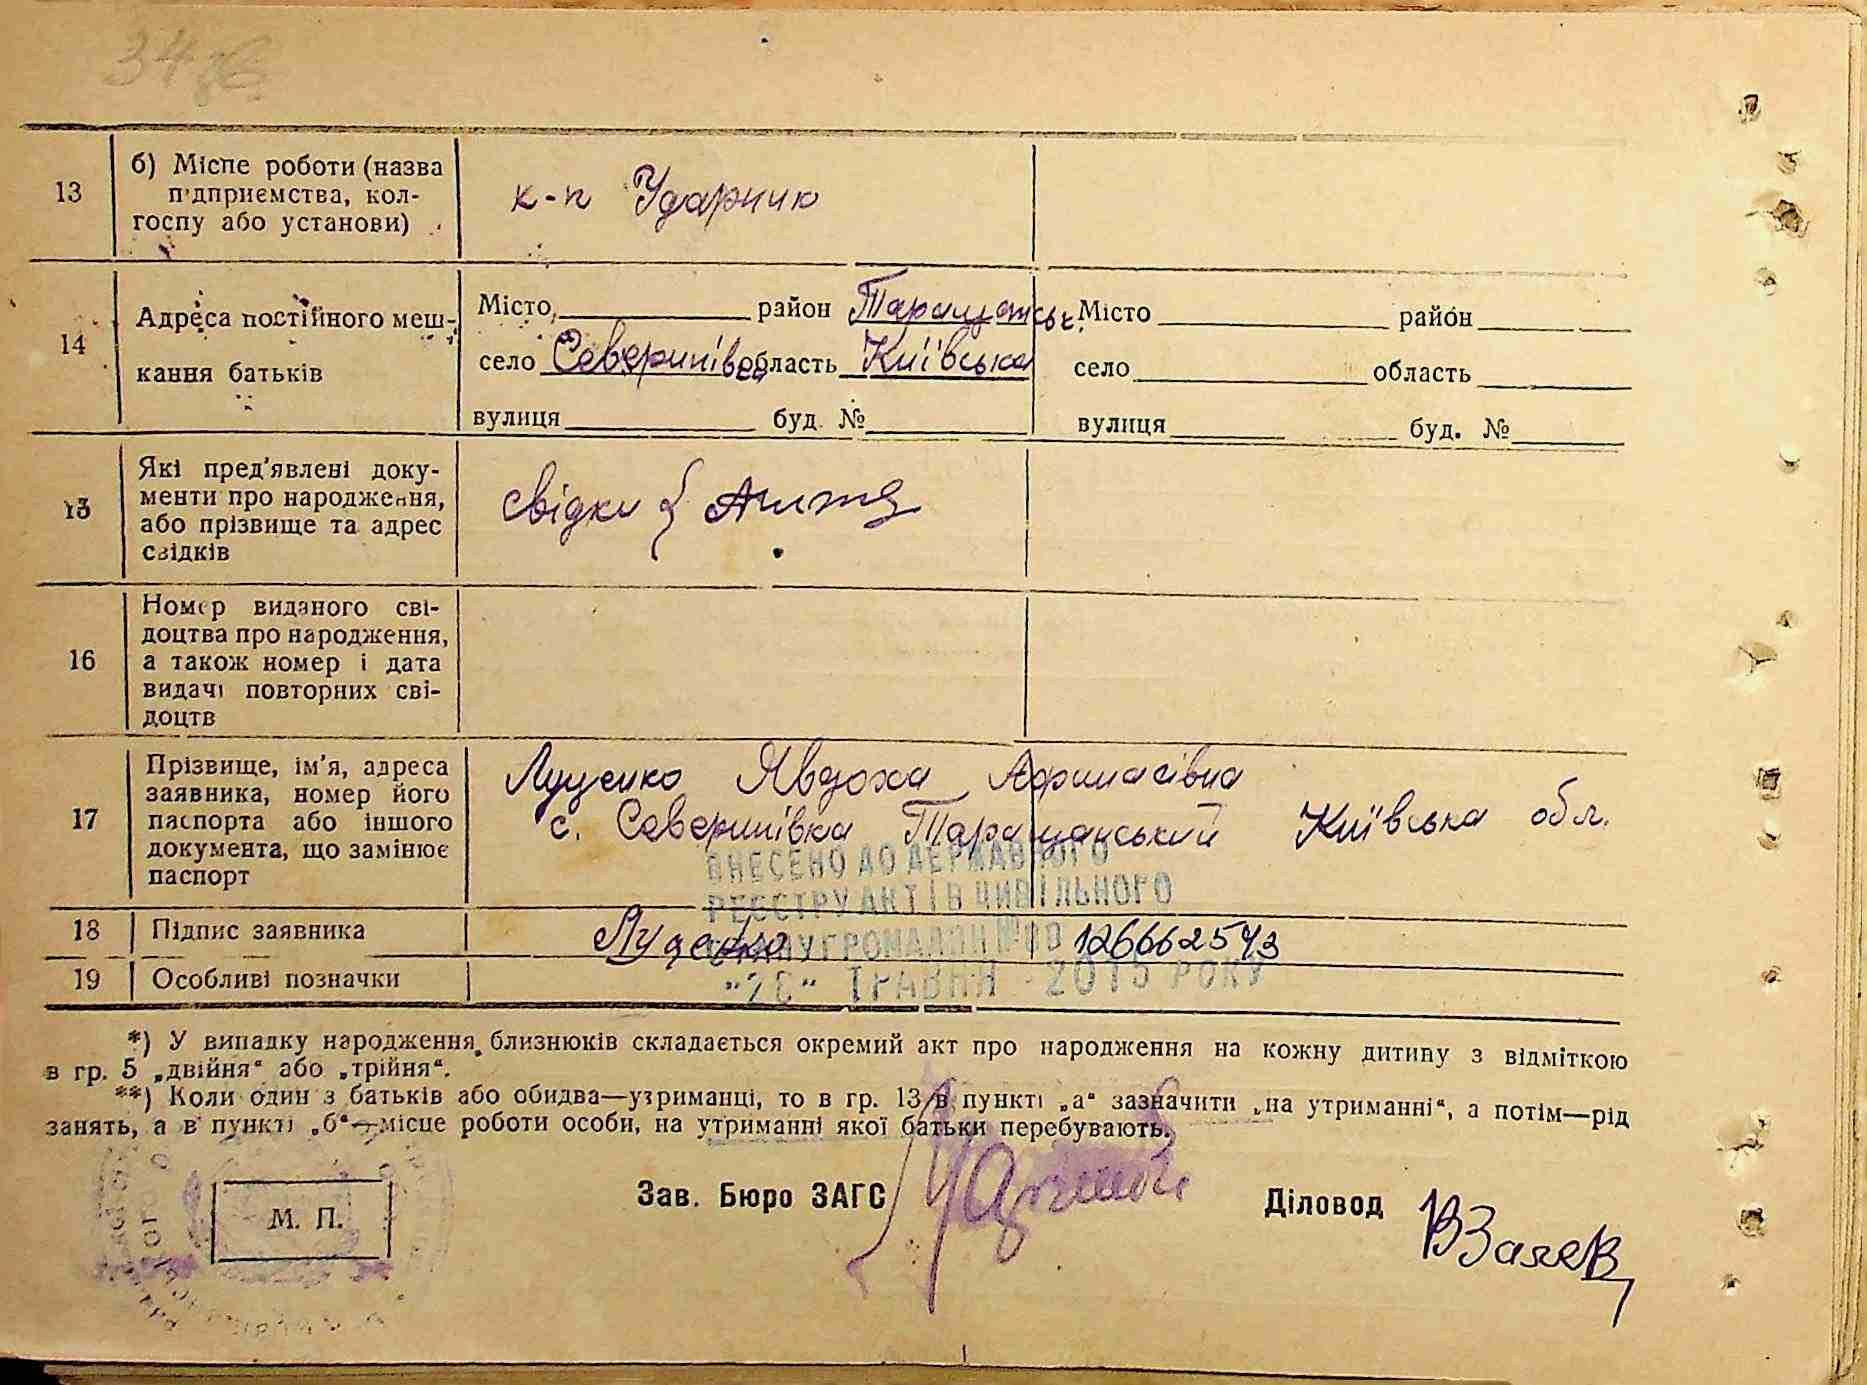 34
13
б) Місце роботи (назва
підприємства, кол-
госпу або установи)
к-п Ударник
14
Адреса постійного меш-
кання батьків
Місто, район Таращанськ.
село Северинівка область Київська
вулиця буд. №
Місто район
село область
вулиця буд. №
15
Які пред'явлені доку-
менти про народження,
або прізвище та адрес
свідків
свідки {
16
Номер виданого сві-
доцтва про народження,
а також номер і дата
видачі повторних сві-
доцтв
17
Прізвище, ім'я, адреса
заявника, номер його
паспорта або іншого
документа, що замінює
паспорт
Луценко Явдоха Афанасівна
с. Северинівка Таращанський Київська обл.
ВНЕСЕНО ДО ДЕРЖАВНОГО
РЕЄСТРУ АКТІВ ЦИВІЛЬНОГО
СТАНУ ГРОМАДЯН № 00 126662543
"26" ТРАВНЯ 2015 РОКУ
18
Підпис заявника
Луценко
19
Особливі позначки
*) У випадку народження близнюків складається окремий акт про народження на кожну дитину з відміткою
в гр. 5 „двійня“ або „трійня“.
**) Коли один з батьків або обидва—утриманці, то в гр. 13 в пункті „а“ зазначити „на утриманні“, а потім—рід
занять, а в пункті „б“—місце роботи особи, на утриманні якої батьки перебувають.
М. П.
Зав. Бюро ЗАГС
Діловод